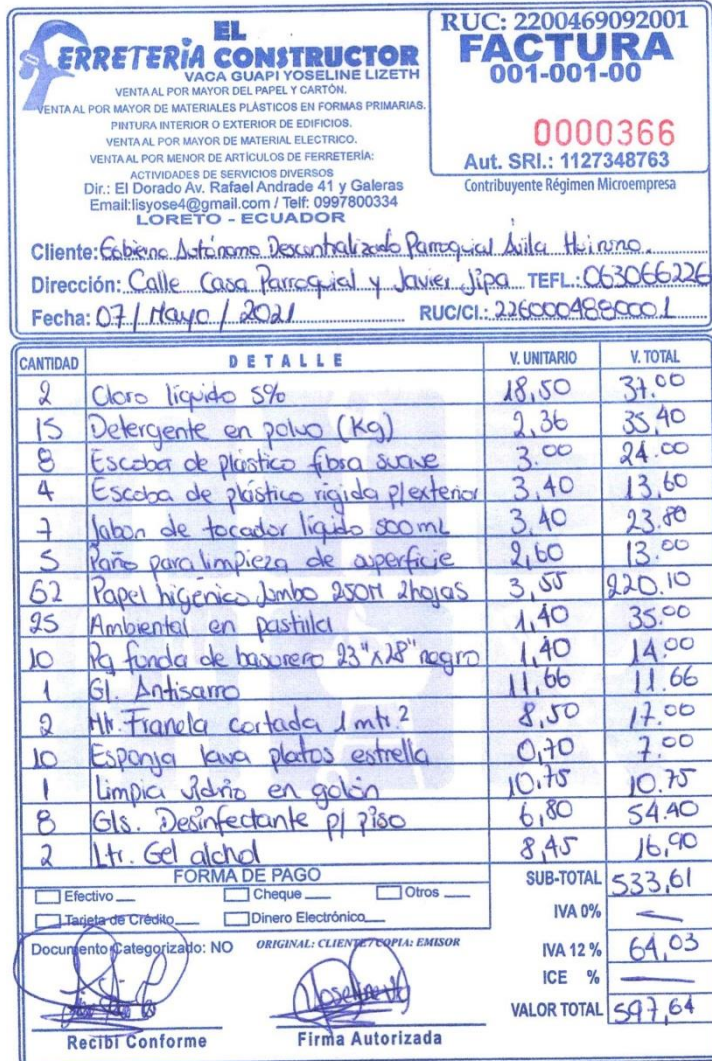 EL
FERRETERÍA CONSTRUCTOR
VACA GUAPI YOSELINE LIZETH
VENTA AL POR MAYOR DEL PAPEL Y CARTÓN.
VENTA AL POR MAYOR DE MATERIALES PLÁSTICOS EN FORMAS PRIMARIAS.
PINTURA INTERIOR O EXTERIOR DE EDIFICIOS.
VENTA AL POR MAYOR DE MATERIAL ELECTRICO.
VENTA AL POR MENOR DE ARTÍCULOS DE FERRETERÍA:
ACTIVIDADES DE SERVICIOS DIVERSOS
Dir.: El Dorado Av. Rafael Andrade 41 y Galeras
Email:lisyose4@gmail.com / Telf: 0997800334
LORETO - ECUADOR
RUC: 2200469092001
FACTURA
001-001-00
0000366
Aut. SRI.: 1127348763
Contribuyente Régimen Microempresa
Cliente: Gobierno Autónomo Descentralizado Parroquial Ávila Huiruno.
Dirección: Calle Casa Parroquial y Javier Jipa TEFL.: 063066226
Fecha: 07 / Mayo / 2021 RUC/CI.: 2260004880001
CANTIDAD DETALLE V. UNITARIO V. TOTAL
2 Cloro líquido 5% 18,50 37.00
15 Detergente en polvo (Kg) 2,36 35,40
8 Escoba de plástico fibra suave 3.00 24.00
4 Escoba de plástico rígida p/exterior 3,40 13,60
7 Jabon de tocador líquido 500 ml 3,40 23.80
5 Paño para limpieza de superficie 2,60 13.00
62 Papel higénico Jumbo 250M 2hojas 3,55 220.10
25 Ambiental en pastilla 1,40 35.00
10 Pq funda de basurero 23"x28" negro 1,40 14.00
1 Gl. Antisarro 11,66 11.66
2 Mt. Franela cortada 1 mtr.² 8,50 17.00
10 Esponja lava platos estrella 0,70 7.00
1 Limpia vidrio en galón 10.75 10.75
8 Gls. Desinfectante p/ piso 6,80 54.40
2 Ltr. Gel alchol 8,45 16,90
FORMA DE PAGO
Efectivo Cheque Otros
Tarjeta de Crédito Dinero Electrónico
SUB-TOTAL 533,61
IVA 0% —
IVA 12 % 64,03
ICE % —
VALOR TOTAL 597,64
Documento Categorizado: NO ORIGINAL: CLIENTE / COPIA: EMISOR
Recibí Conforme Firma Autorizada